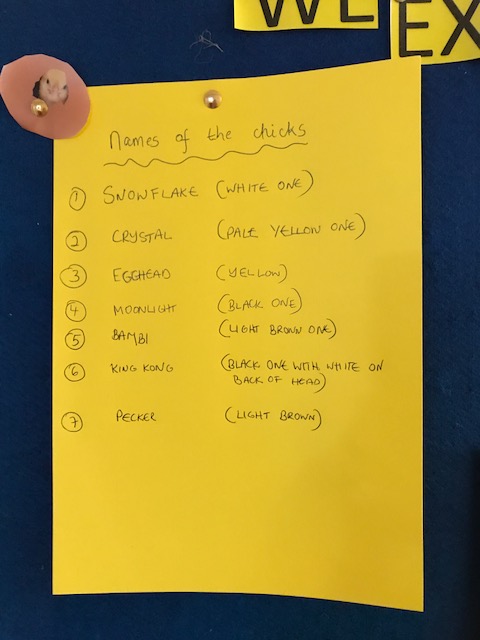 WE
EX
Names of the chicks
1 SNOWFLAKE (WHITE ONE)
2 CRYSTAL (PALE YELLOW ONE)
3 EGGHEAD (YELLOW)
4 MOONLIGHT (BLACK ONE)
5 BAMBI (LIGHT BROWN ONE)
6 KING KONG (BLACK ONE WITH WHITE ON
BACK OF HEAD)
7 PECKER (LIGHT BROWN)